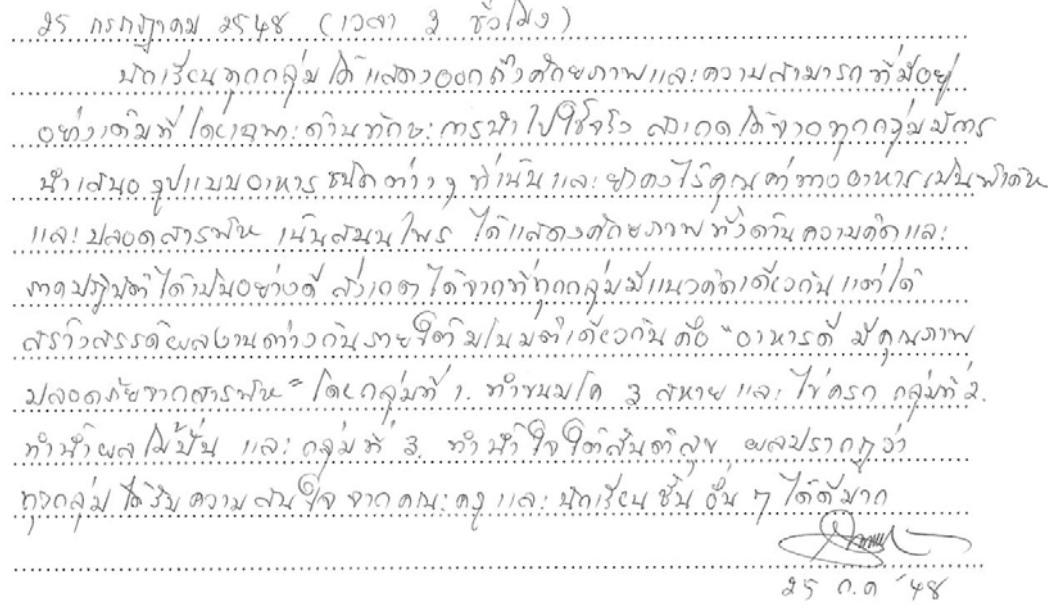 25 กรกฎาคม 2548 (เวลา 3 ชั่วโมง)
นักเรียนทุกกลุ่มได้แสดงออกถึงศักยภาพและความสามารถที่มีอยู่
อย่างเต็มที่โดยเฉพาะด้านทักษะการนำไปใช้จริง สังเกตได้จากทุกกลุ่มมีการ
นำเสนอรูปแบบอาหารชนิดต่าง ๆ ที่เน้นและยังคงไว้คุณค่าทางอาหารเป็น
และปลอดสารพิษ เน้นสมุนไพร ได้แสดงศักยภาพทั้งด้านความคิดและ
ภาคปฏิบัติได้เป็นอย่างดี สังเกตได้จากที่ทุกกลุ่มมีแนวคิดเดียวกัน แต่ได้
สร้างสรรค์ผลงานต่างกันภายใต้มโนมติเดียวกันคือ "อาหารดี มีคุณภาพ
ปลอดภัยจากสารพิษ" โดยกลุ่มที่ 1. ทำขนมโค 3 สหายและไข่ครก กลุ่มที่ 2.
ทำน้ำผลไม้ปั่น และกลุ่มที่ 3. ทำน้ำใจใต้สันติสุข ผลปรากฏว่า
ทุกกลุ่มได้รับความสนใจจากคณะครูและนักเรียนชั้นอื่น ๆ ได้ดีมาก
25 ก.ค '48